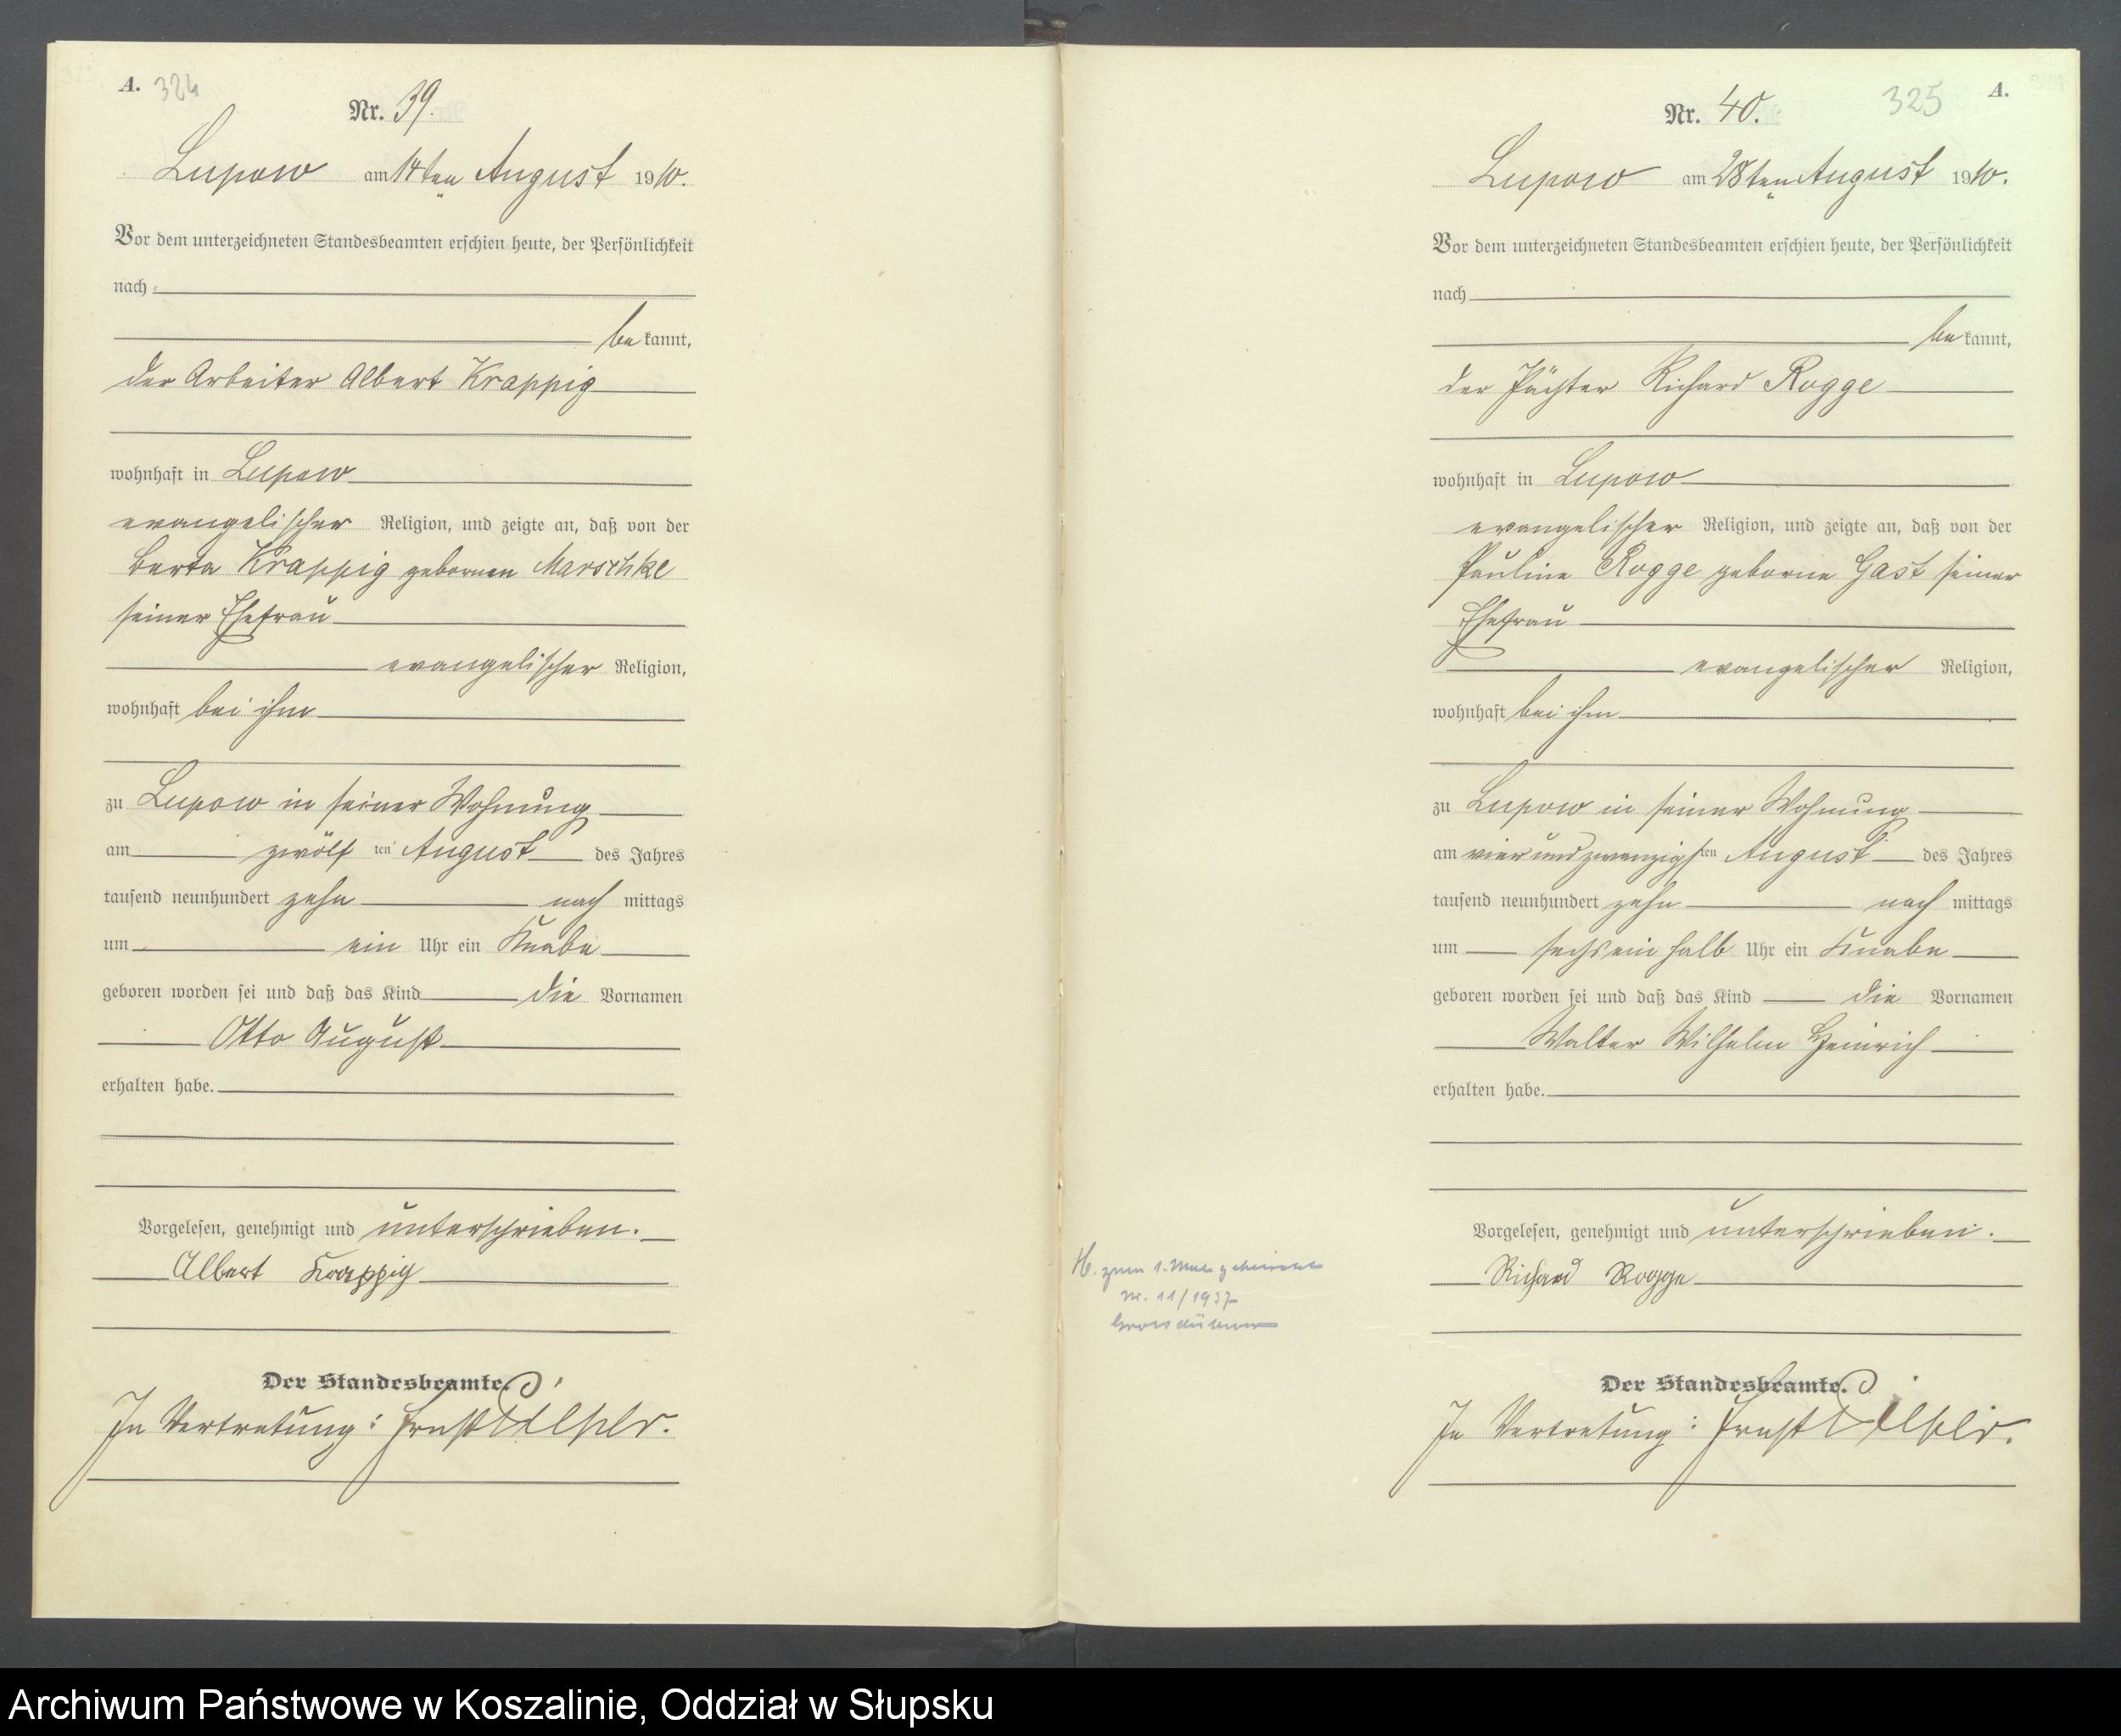 A. 324
Nr. 39.
Lupow am 14ten August 1910.
Vor dem unterzeichneten Standesbeamten erschien heute, der Persönlichkeit
nach
be kannt,
der Arbeiter Albert Krappig
wohnhaft in Lupow
evangelischer Religion, und zeigte an, daß von der
Berta Krappig gebornen Marschke
seiner Ehefrau
evangelischer Religion,
wohnhaft bei ihm
zu Lupow in seiner Wohnung
am zwölf ten August des Jahres
tausend neunhundert zehn nach mittags
um ein Uhr ein Knabe
geboren worden sei und daß das Kind die Vornamen
Otto August
erhalten habe.
Vorgelesen, genehmigt und unterschrieben.
Albert Krappig
Der Standesbeamte.
In Vertretung: Ernst
325 A.
Nr. 40.
Lupow am 28ten August 1910.
Vor dem unterzeichneten Standesbeamten erschien heute, der Persönlichkeit
nach
be kannt,
der Pächter Richard Rogge
wohnhaft in Lupow
evangelischer Religion, und zeigte an, daß von der
Pauline Rogge geborne Gast seiner
Ehefrau
evangelischer Religion,
wohnhaft bei ihm
zu Lupow in seiner Wohnung
am vierundzwanzigsten August des Jahres
tausend neunhundert zehn nach mittags
um sechseinhalb Uhr ein Knabe
geboren worden sei und daß das Kind die Vornamen
Walter Wilhelm Heinrich
erhalten habe.
Vorgelesen, genehmigt und unterschrieben.
Richard Rogge
Der Standesbeamte.
In Vertretung: Ernst
H. zum 1. Male geheiratet
Nr. 11/1937
Grossdübsow
Archiwum Państwowe w Koszalinie, Oddział w Słupsku